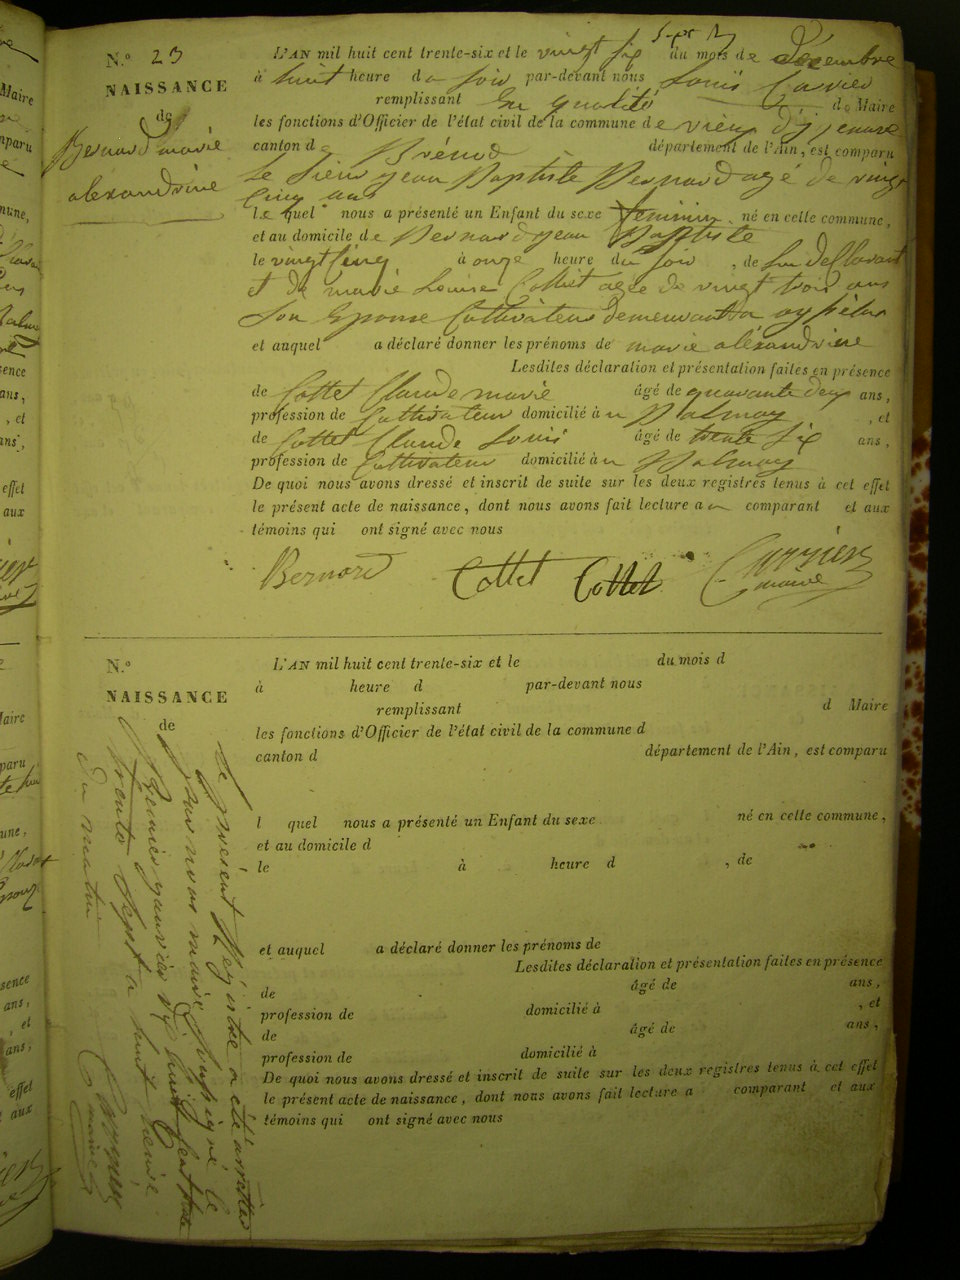 N.º 23
NAISSANCE
de
Bernard marie
alexandrine
L'AN mil huit cent trente-six et le vingt six du mois de Décembre
à huit heure du soir par-devant nous Louis
remplissant en qualité de Maire
les fonctions d'Officier de l'état civil de la commune de vieu
canton de Brénod département de l'Ain, est comparu
le sieur jean Baptiste Bernard age de vingt
cinq ans
lequel nous a présenté un Enfant du sexe feminin né en cette commune,
et au domicile de Bernard jean Baptiste
le vingt cinq à onze heure du soir, de lui
et de marie Louise Collet agée de vingt trois ans
son Epouse Cultivateur demeurant a
et auquel a déclaré donner les prénoms de marie aléxandrine
Lesdites déclaration et présentation faites en présence
de Cottet Claude marie âgé de quarante deux ans,
profession de Cultivateur domicilié à, et
de Cottet Claude Louis âgé de trente six ans,
profession de Cultivateur domicilié à
De quoi nous avons dressé et inscrit de suite sur les deux registres tenus à cet effet
le présent acte de naissance, dont nous avons fait lecture au comparant et aux
témoins qui ont signé avec nous
Bernard Cottet Cottet
maire
N.º
NAISSANCE
de
L'AN mil huit cent trente-six et le du mois d
à heure d par-devant nous
remplissant d Maire
les fonctions d'Officier de l'état civil de la commune d
canton d département de l'Ain, est comparu
l quel nous a présenté un Enfant du sexe né en cette commune,
et au domicile d
le à heure d, de
et auquel a déclaré donner les prénoms de
Lesdites déclaration et présentation faites en présence
de âgé de ans,
profession de domicilié à, et
de âgé de ans,
profession de domicilié à
De quoi nous avons dressé et inscrit de suite sur les deux registres tenus à cet effet
le présent acte de naissance, dont nous avons fait lecture a comparant et aux
témoins qui ont signé avec nous
le présent Régistre a été arrêtté
par nous maire soussigné le
premier janvier mil huit cent
trente sept a huit heure
du matin
maire